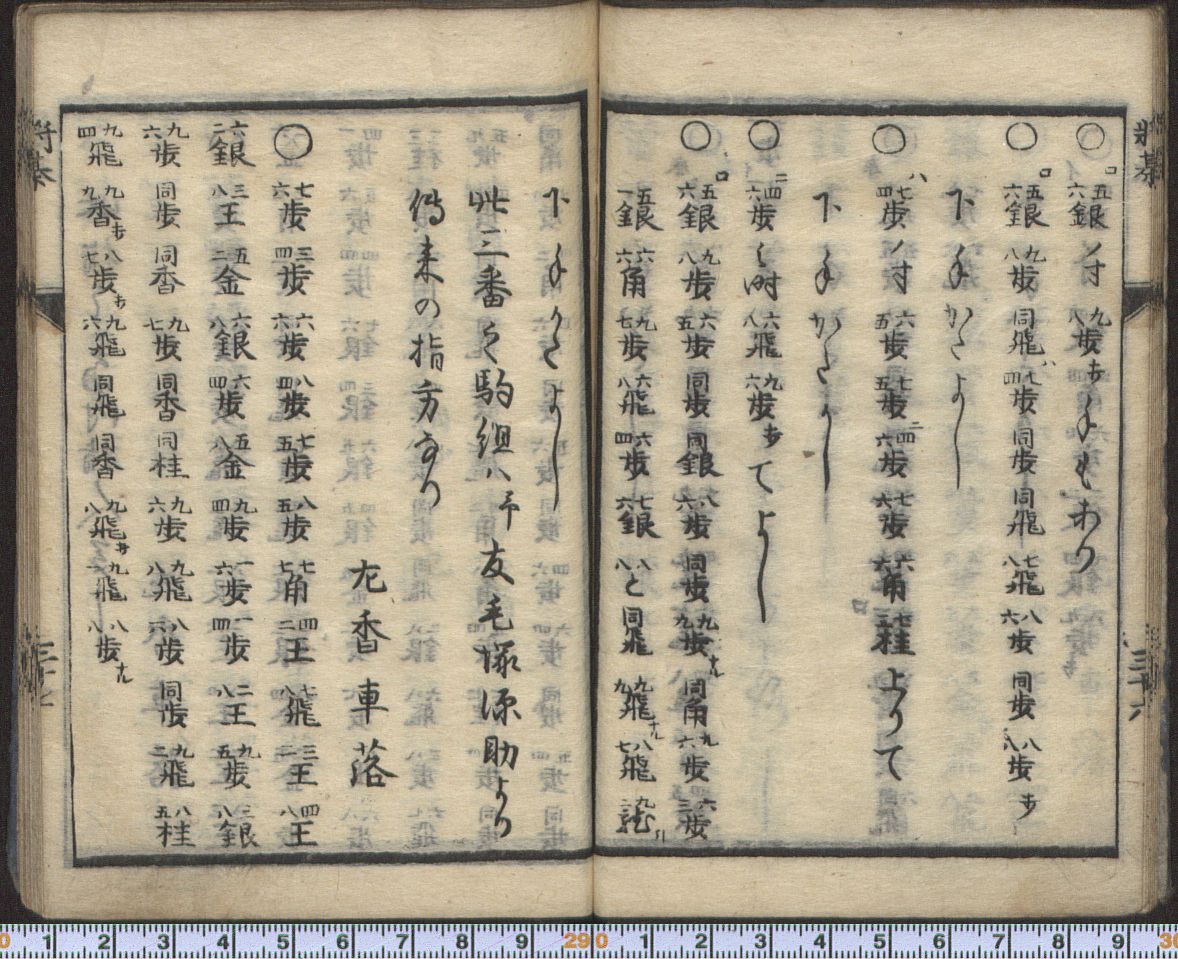 将棊 三十六
○ロ五六銀ノ時 九八歩打手もあり
○ロ五六銀 九八歩 同飛 ハ七四歩 同歩 同飛 七八飛 八六歩 同歩 八八歩打
下手かたよし
○ハ七四歩ノ時 六五歩 七五歩 ニ四六歩 七六歩 六六角 七三桂 よりて
下手かたよし
○ニ四六歩之時 六八飛 九六歩打てよし
○ロ五六銀 九八歩 六五歩 同歩 同銀 八六歩 同歩 九九歩ナル 同角 九六歩 六三歩
五一銀 六六角 九七歩 六八飛 六四歩 七六銀 八八と 同飛 九九飛ナル 八七飛 九龍引
下手かたよし
此三番之駒組ハ予友毛塚源助より
傳来の指方なり
左香車落
○七六歩 三四歩 六六歩 八四歩 七五歩 八五歩 七七角 四二王 七八飛 三二王 四八王
六二銀 三八王 五二金 六八銀 六四歩 五八金 九四歩 一六歩 一四歩 二八王 九五歩 三八銀
九六歩 同歩 同香 九七歩 同香 同桂 九六歩 九八飛 八六歩 同歩 九二飛 八五桂
九四飛 九九香打 八七歩打 九六飛 同飛 同香 九八飛打 九一飛 八八歩ナル
将棊 三十七